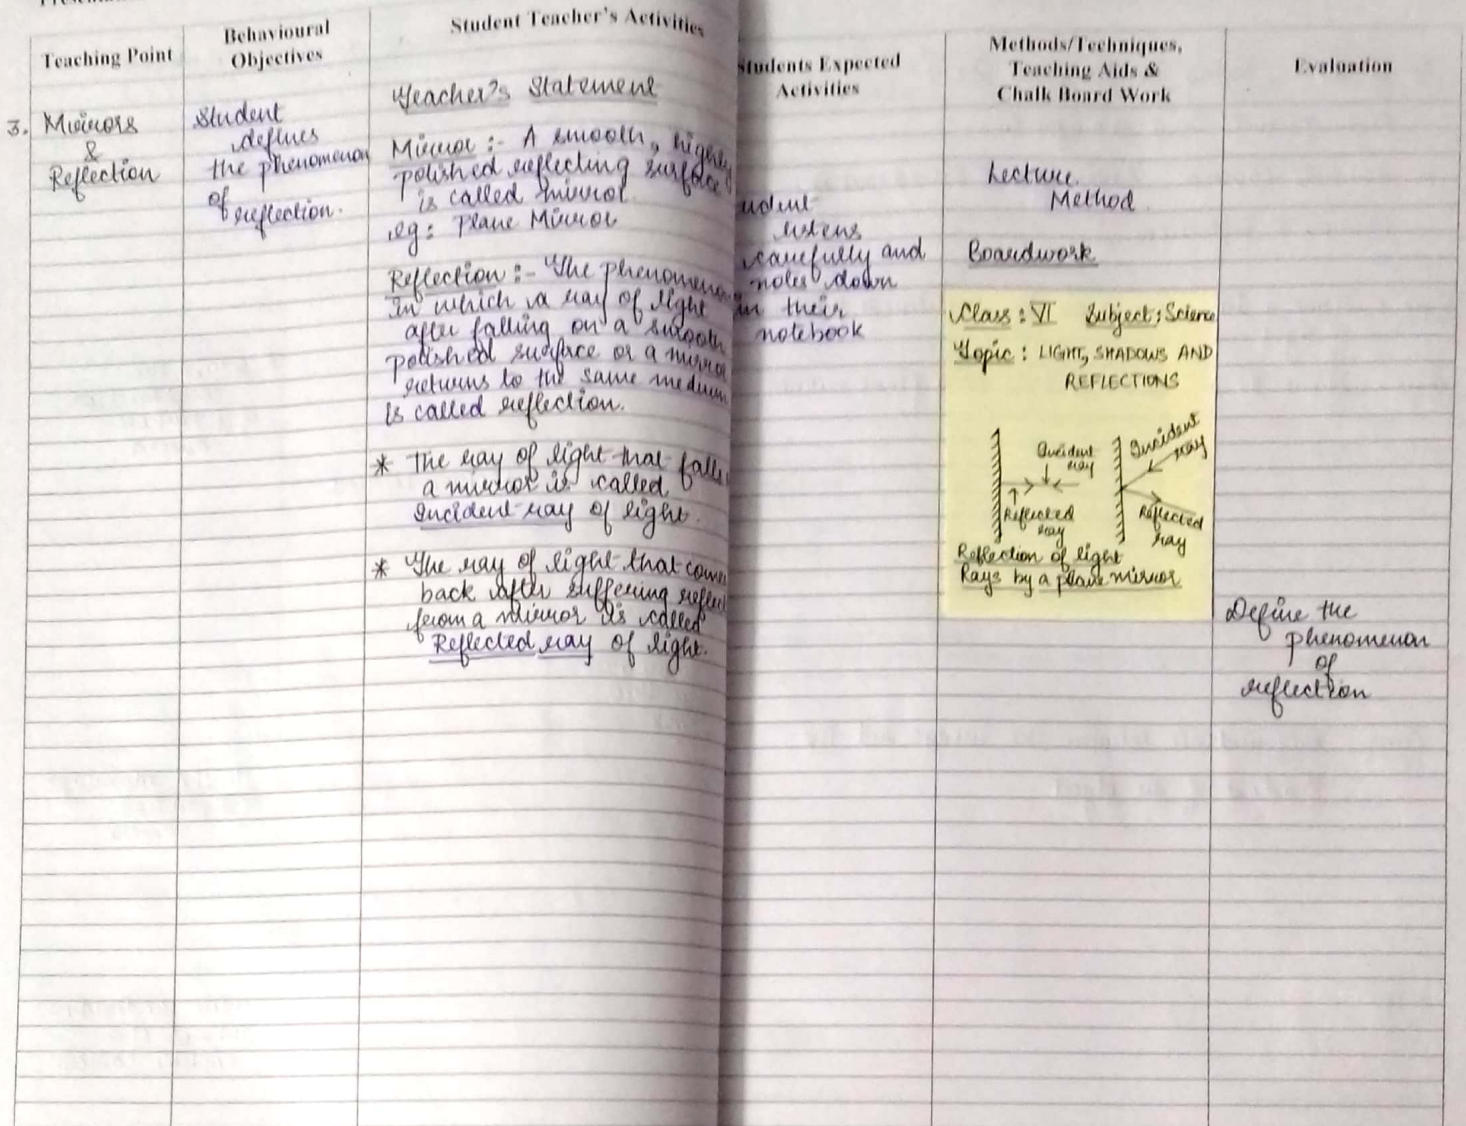 Teaching Point
Behavioural
Objectives
Student Teacher's Activities
Students Expected
Activities
Methods/Techniques,
Teaching Aids &
Chalk Board Work
Evaluation
3. Mirrors
&
Reflection
Student
defines
the phenomenon
of reflection.
Teacher's Statement
Mirror :- A smooth, highly
polished reflecting surface
is called mirror.
eg: Plane Mirror
Reflection :- The phenomenon
in which a ray of light
after falling on a smooth
polished surface or a mirror
returns to the same medium
is called reflection.
* The ray of light that falls
a mirror is called
Incident ray of light.
* The ray of light that comes
back after suffering reflect
from a mirror is called
Reflected ray of light.
udent
listens
carefully and
notes down
in their
notebook
Lecture
Method
Boardwork
Class : VI Subject : Science
Topic : LIGHT, SHADOWS AND
REFLECTIONS
Incident
ray
Reflected
ray
Incident
ray
Reflected
ray
Reflection of light
Rays by a plane mirror
Define the
phenomenon
of
reflection